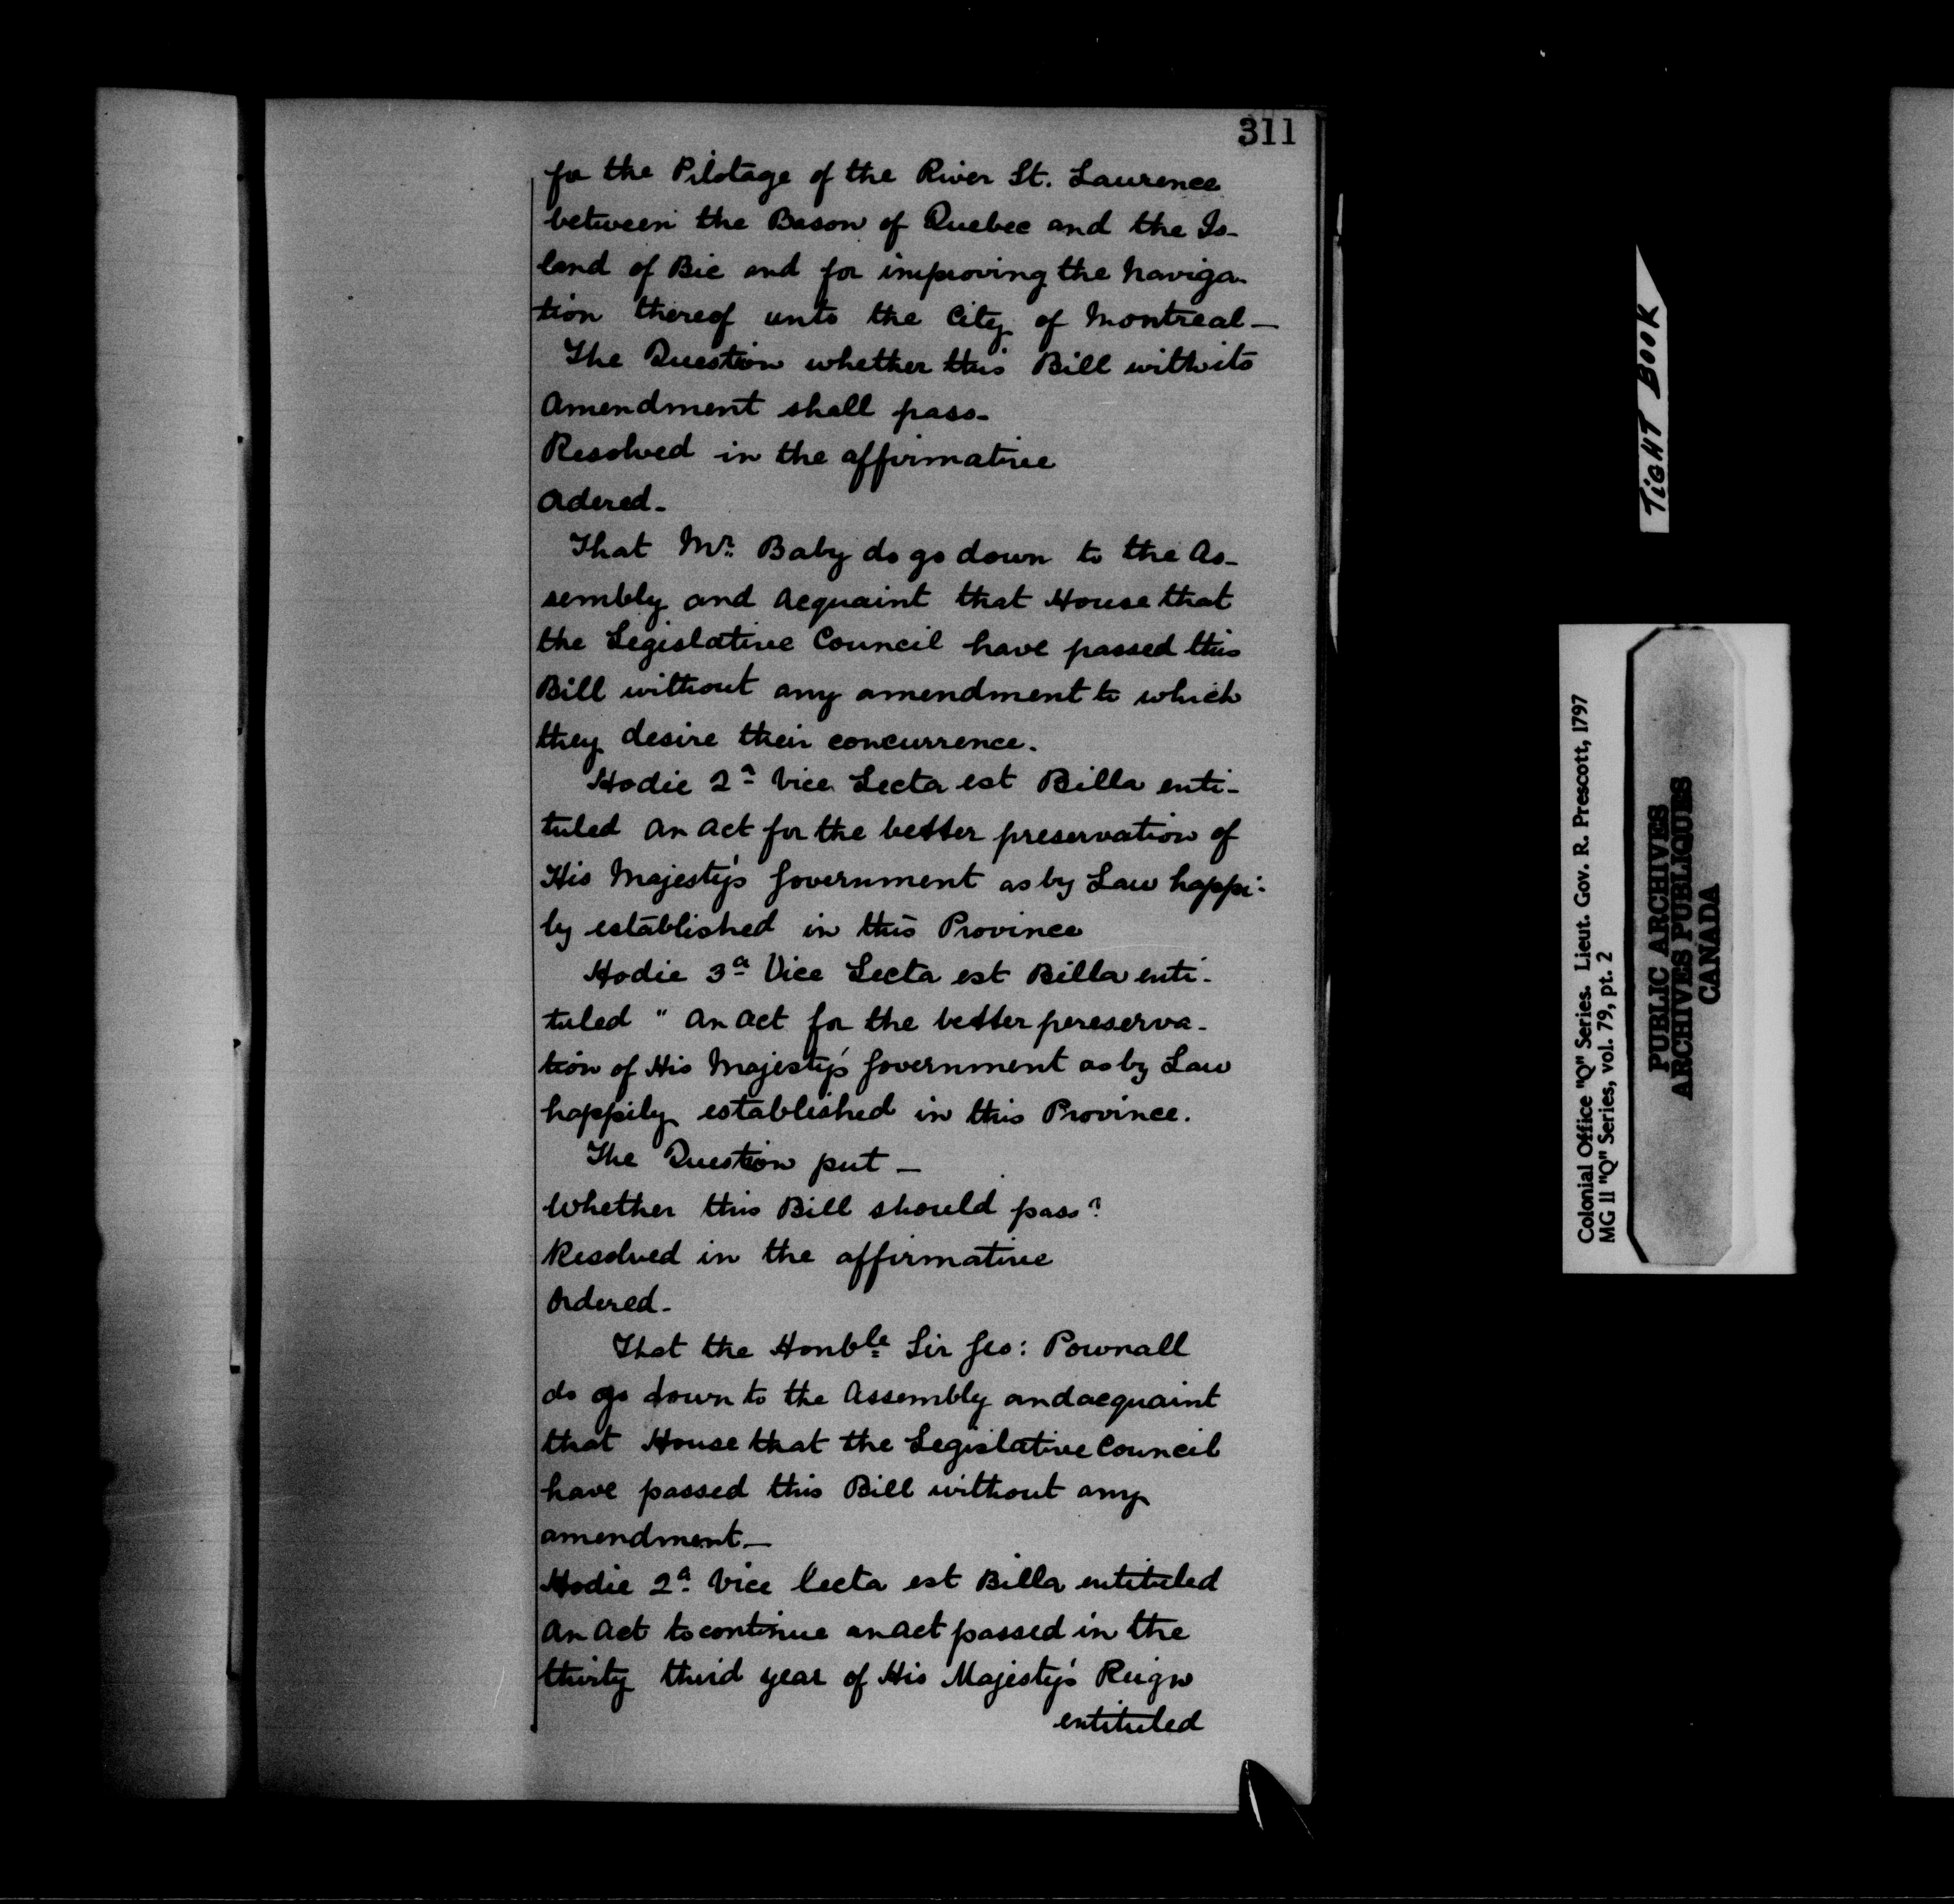 311
for the Pilotage of the River St. Laurence
between the Bason of Quebec and the Is-
land of Bic and for improving the naviga-
tion thereof unto the City of Montreal —
The Question whether this Bill with its
Amendment shall pass-
Resolved in the affirmative
Ordered-
That Mr. Baby do go down to the As-
sembly and acquaint that House that
the Legislative Council have passed this
Bill without any amendment to which
they desire their concurrence.
Hodie 2a Vice Lecta est Billa enti-
tuled An Act for the better preservation of
His Majesty's Government as by Law happi-
ly established in this Province
Hodie 3a Vice Lecta est Billa enti-
tuled " An Act for the better pereserva-
tion of His Majesty's Government as by Law
happily established in this Province.
The Question put —
Whether this Bill should pass?
Resolved in the affirmative
Ordered-
That the Honble Sir Geo: Pownall
do go down to the Assembly and acquaint
that House that the Legislative Council
have passed this Bill without any
amendment —
Hodie 2a Vice lecta est Billa entituled
An Act to continue an Act passed in the
thirty third year of His Majesty's Reign
entituled
TIGHT BOOK
Colonial Office "Q" Series. Lieut. Gov. R. Prescott, 1797
MG 11 "Q" Series, vol. 79, pt. 2
PUBLIC ARCHIVES
ARCHIVES PUBLIQUES
CANADA